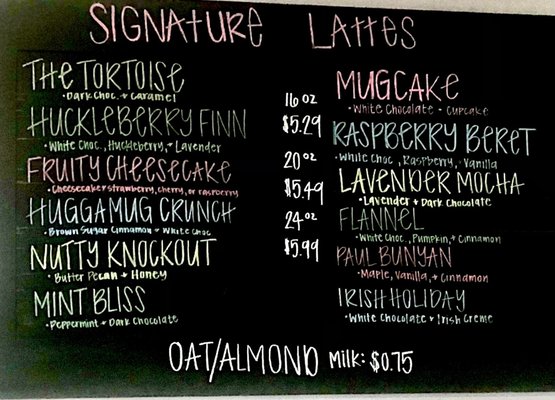 SIGNATURE LATTES
THE TORTOISE
• Dark Choc. + Caramel
HUCKLEBERRY FINN
• White Choc., Huckleberry, + Lavender
FRUITY CHEESECAKE
• Cheesecake + Strawberry, Cherry, or Raspberry
HUGGAMUG CRUNCH
• Brown Sugar Cinnamon + White Choc
NUTTY KNOCKOUT
• Butter Pecan + Honey
MINT BLISS
• Peppermint + Dark Chocolate
16 oz
$5.29
20 oz
$5.49
24 oz
$5.99
MUGCAKE
• White Chocolate + Cupcake
RASPBERRY BERET
• White Choc., Raspberry, + Vanilla
LAVENDER MOCHA
• Lavender + Dark Chocolate
FLANNEL
• White Choc., Pumpkin, + Cinnamon
PAUL BUNYAN
• Maple, Vanilla, + Cinnamon
IRISH HOLIDAY
• White Chocolate + Irish Creme
OAT/ALMOND Milk: $0.75